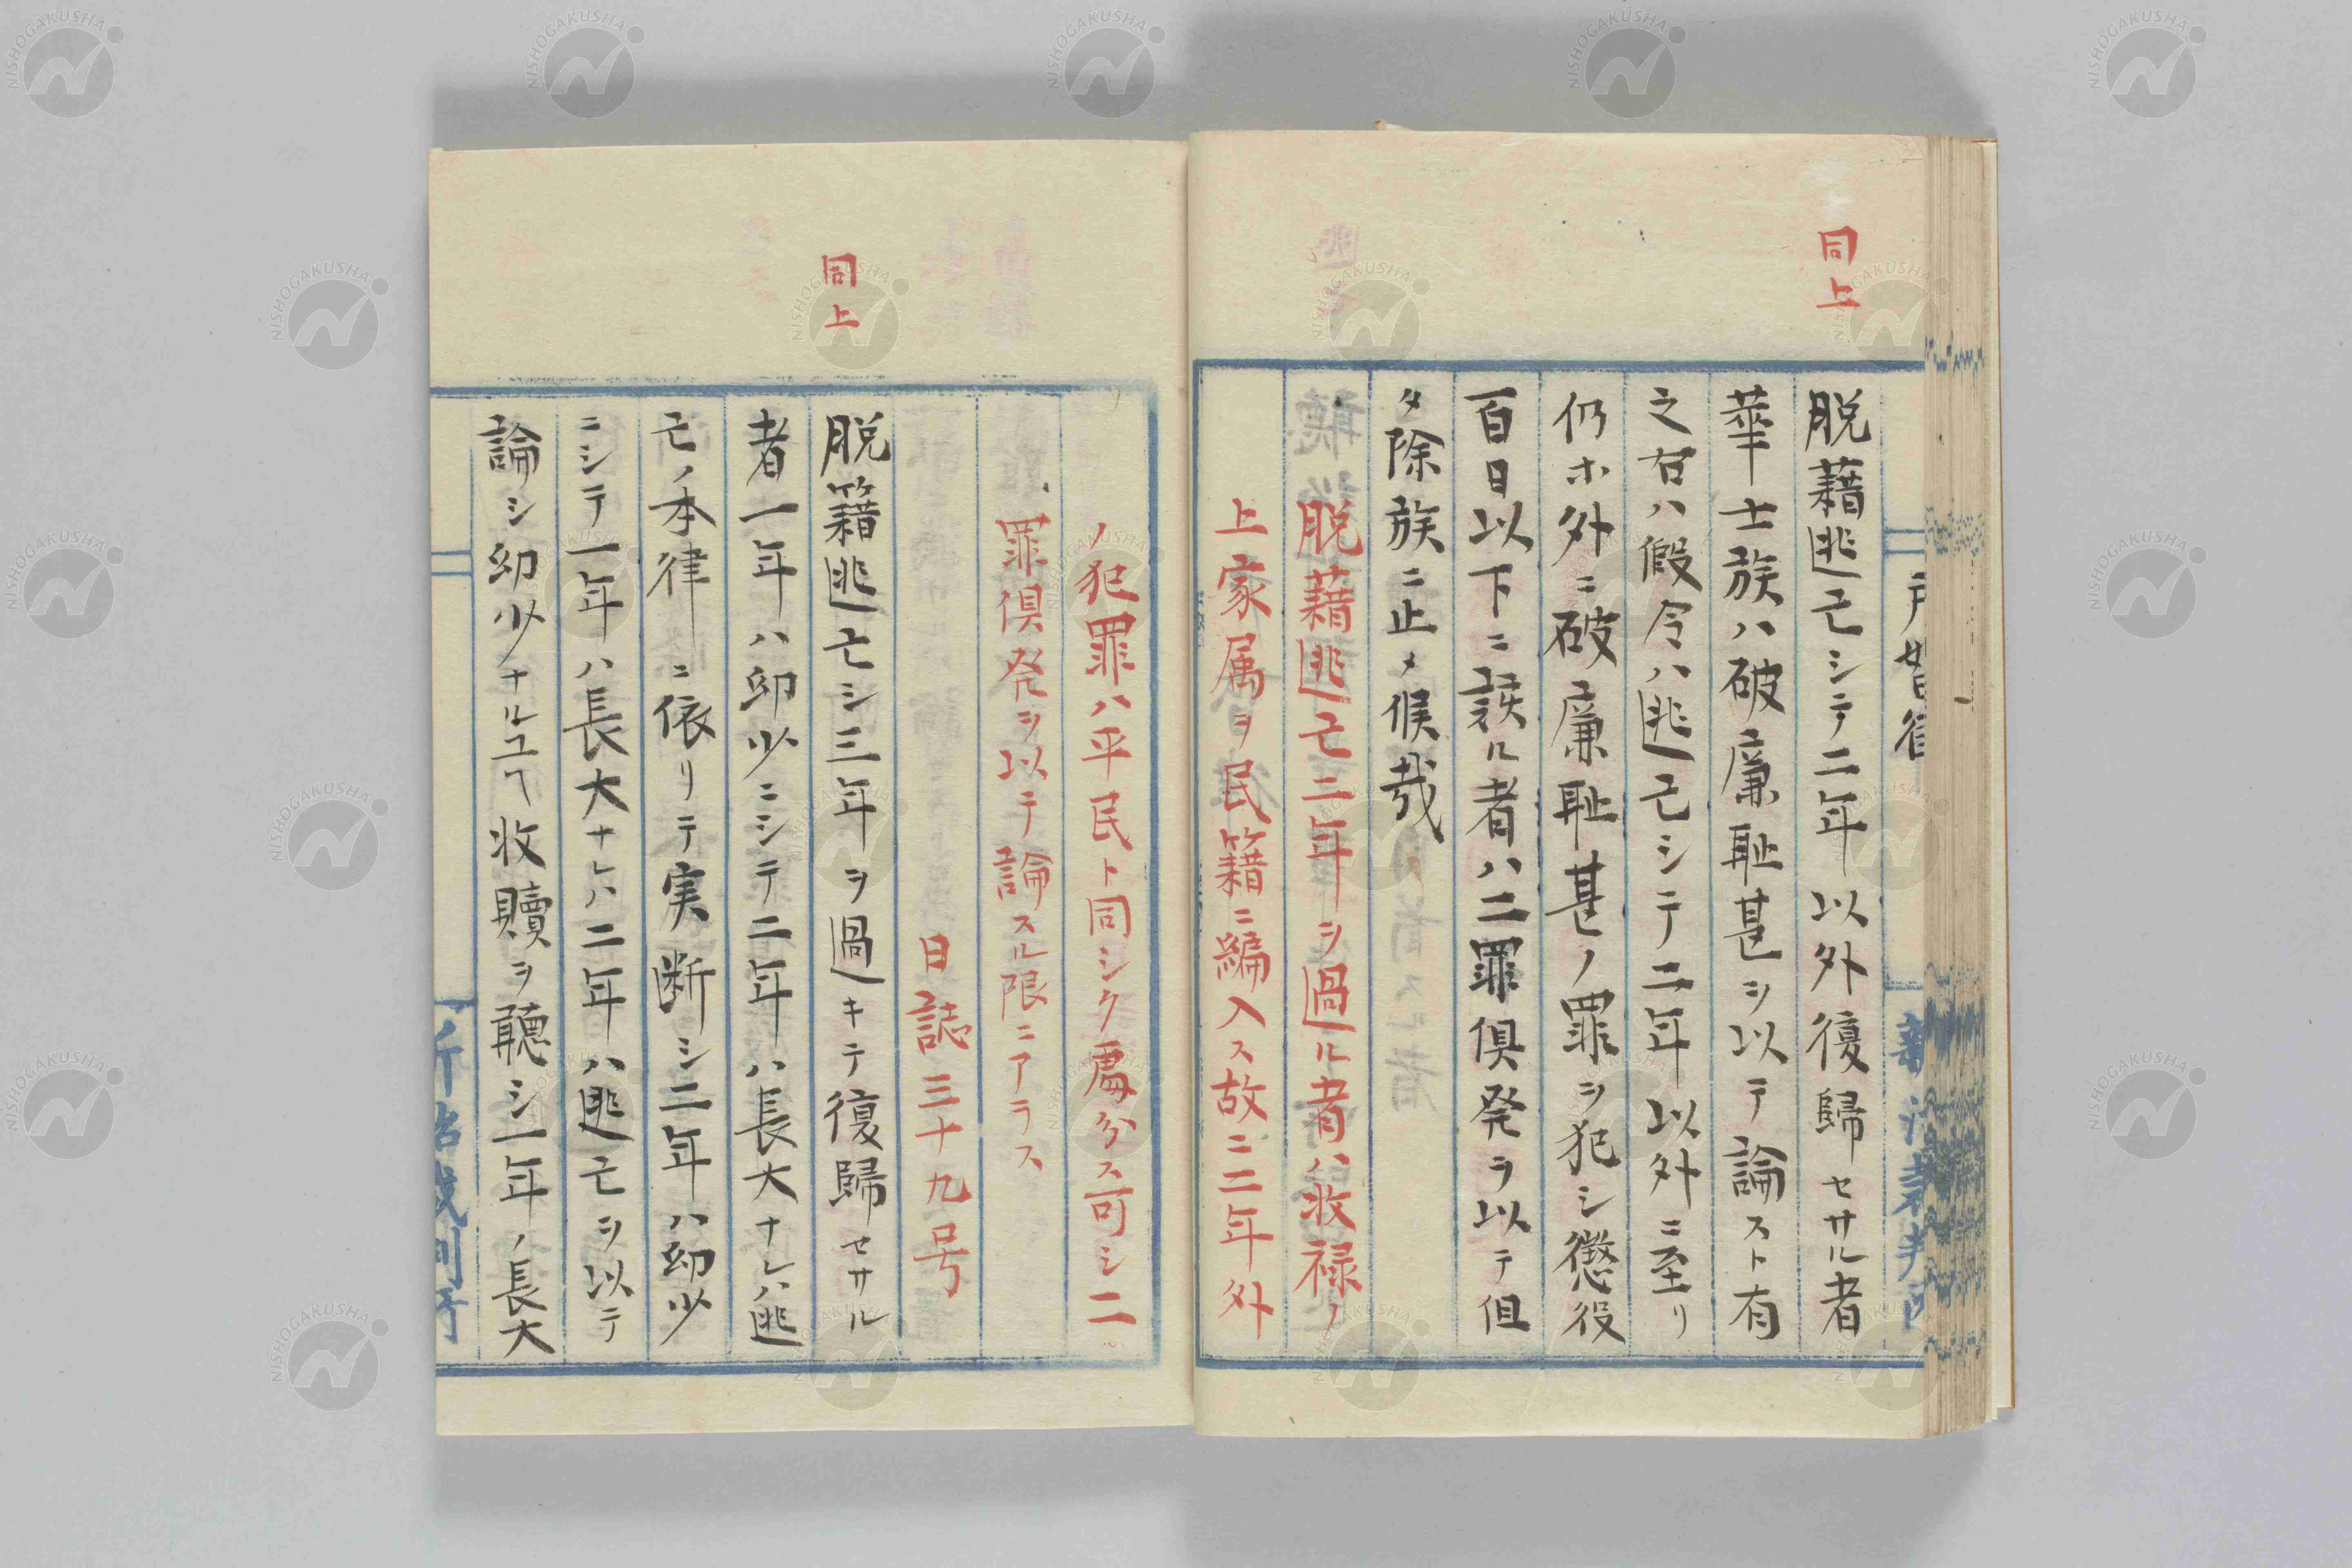 同上
戸婚律
脱藉逃亡シテ二年以外復歸セサル者
華士族ハ破廉耻甚ヲ以テ論スト有
之右ハ假令ハ逃亡シテ二年以外ニ至リ
仍ホ外ニ破廉耻甚ノ罪ヲ犯シ懲役
百日以下ニ該ル者ハ二罪俱発ヲ以テ但
タ除族ニ止メ候哉
脱藉逃亡二年ヲ過ル者ハ收禄ノ
上家属ヲ民籍ニ編入ス故ニ二年外
ノ犯罪ハ平民ト同シク處分ス可シ二
罪俱発ヲ以テ論スル限ニアラス
日誌三十九号
同上
脱籍逃亡シ三年ヲ過キテ復歸セサル
者一年ハ幼少ニシテ二年ハ長大ナレハ逃
亡ノ本律ニ依リテ実断シ二年ハ幼少
ニシテ一年ハ長大ナレハ二年ハ逃亡ヲ以テ
論シ幼少ナルユヘ收贖ヲ聽シ一年ノ長大
NISHOGAKUSHA